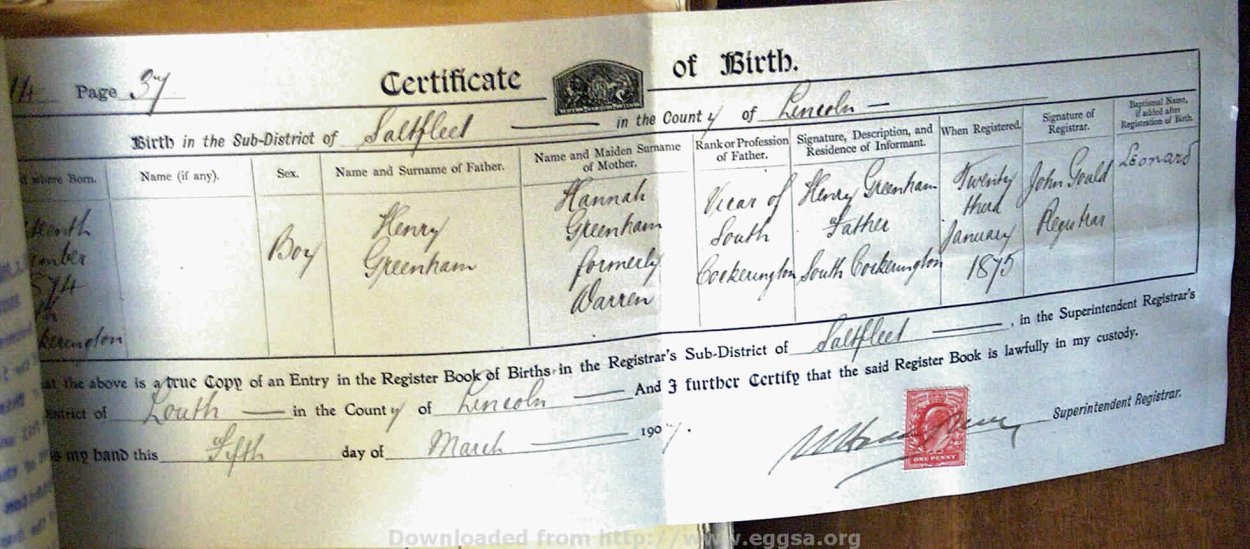 14 Page 37
Certificate of Birth.
Birth in the Sub-District of Saltfleet in the County of Lincoln
where Born.
Name (if any).
Sex.
Name and Surname of Father.
Name and Maiden Surname
of Mother.
Rank or Profession
of Father.
Signature, Description, and
Residence of Informant.
When Registered.
Signature of
Registrar.
Baptismal Name,
if added after
Registration of Birth.
kerington
Boy
Henry
Greenham
Hannah
Greenham
formerly
Warren
Vicar of
South
Cockerington
Henry Greenham
Father
South Cockerington
Twenty
third
January
1875
John Gould
Registrar
Leonard
at the above is a true Copy of an Entry in the Register Book of Births in the Registrar's Sub-District of Saltfleet, in the Superintendent Registrar's
District of Louth in the County of Lincoln And I further Certify that the said Register Book is lawfully in my custody.
my hand this Fifth day of March 1907.
Superintendent Registrar.
ONE PENNY
Downloaded from http://www.eggsa.org